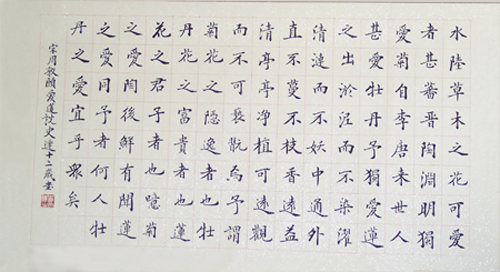 水陸草木之花可愛
者甚蕃晉陶淵明獨
愛菊自李唐來世人
甚愛牡丹予獨愛蓮
之出淤泥而不染濯
清漣而不妖中通外
直不蔓不枝香遠益
清亭亭淨植可遠觀
而不可褻翫焉予謂
菊花之隱逸者也牡
丹花之富貴者也蓮
花之君子者也噫菊
之愛陶後鮮有聞蓮
之愛同予者何人牡
丹之愛宜乎眾矣
宋周敦頤愛蓮說史達十二歲書